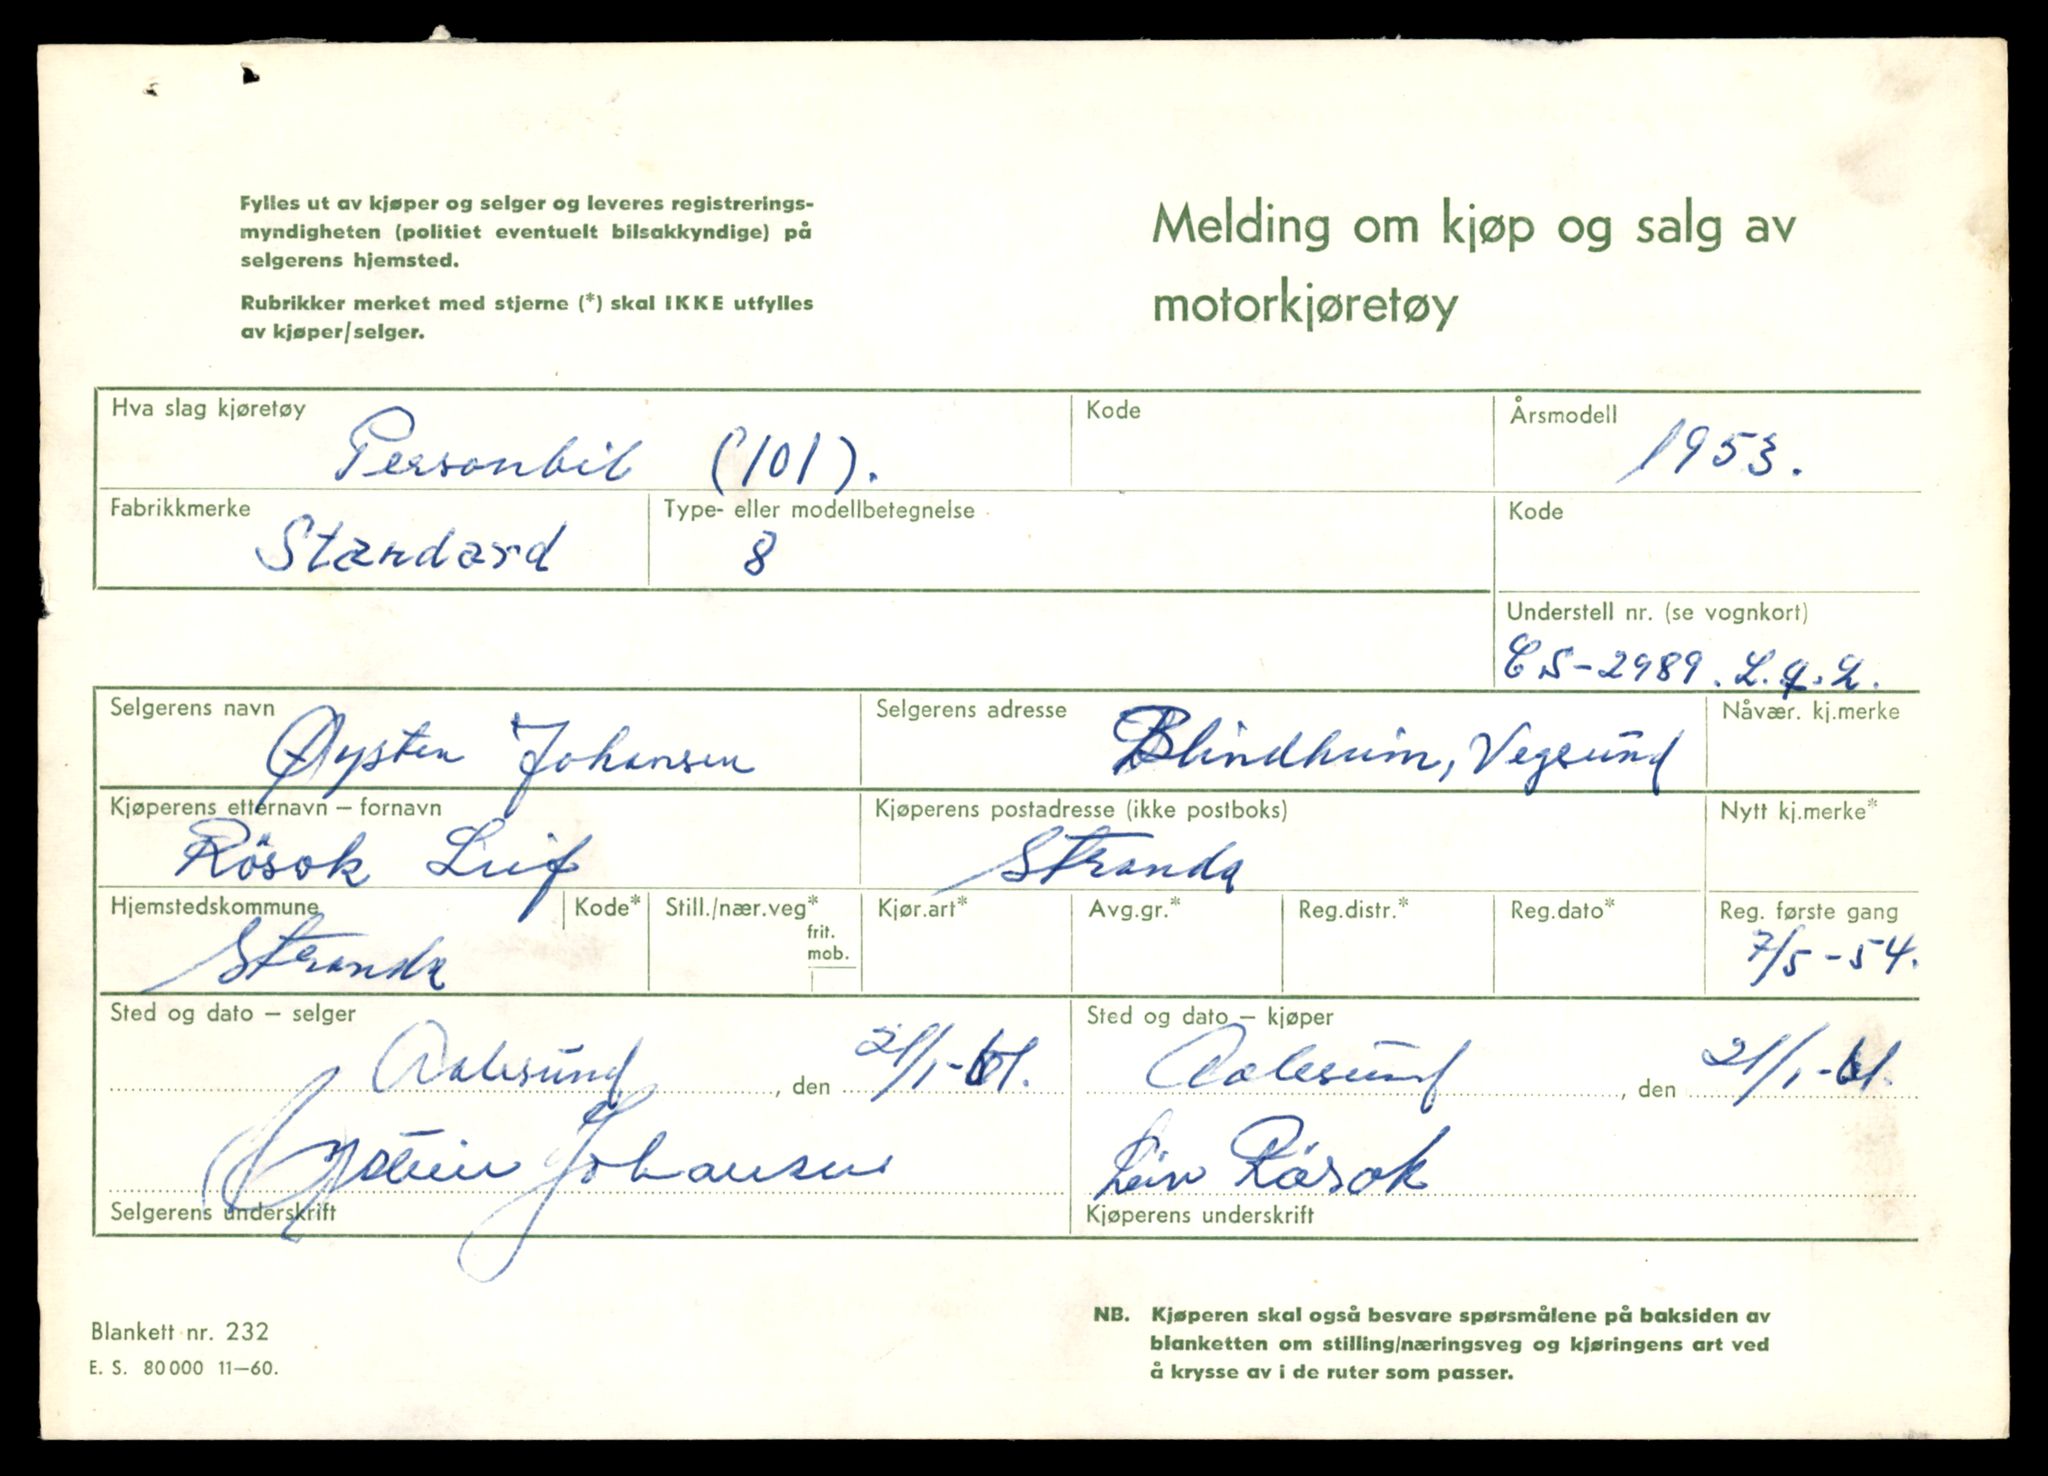 Fylles ut av kjøper og selger og leveres registrerings-
myndigheten (politiet eventuelt bilsakkyndige) på
selgerens hjemsted.
Rubrikker merket med stjerne (*) skal IKKE utfylles
av kjøper/selger.
Melding om kjøp og salg av
motorkjøretøy
Hva slag kjøretøy
Personbil (101).
Kode
Årsmodell
1953.
Fabrikkmerke
Standard
Type- eller modellbetegnelse
8
Kode
Understell nr. (se vognkort)
CS-2989.
Selgerens navn
Øysten Johansen
Selgerens adresse
Blindheim, Vegsund
Nåvær. kj.merke
Kjøperens etternavn – fornavn
Rösok Leif
Kjøperens postadresse (ikke postboks)
Stranda
Nytt kj.merke*
Hjemstedskommune
Stranda
Kode*
Still./nær.veg*
frit.
mob.
Kjør.art*
Avg.gr.*
Reg.distr.*
Reg.dato*
Reg. første gang
7/5-54.
Sted og dato – selger
Aalesund, den 21/1-61.
Øystein Johansen
Selgerens underskrift
Sted og dato – kjøper
Aalesund, den 21/1-61.
Rösok
Kjøperens underskrift
Blankett nr. 232
E. S. 80000 11—60.
NB. Kjøperen skal også besvare spørsmålene på baksiden av
blanketten om stilling/næringsveg og kjøringens art ved
å krysse av i de ruter som passer.